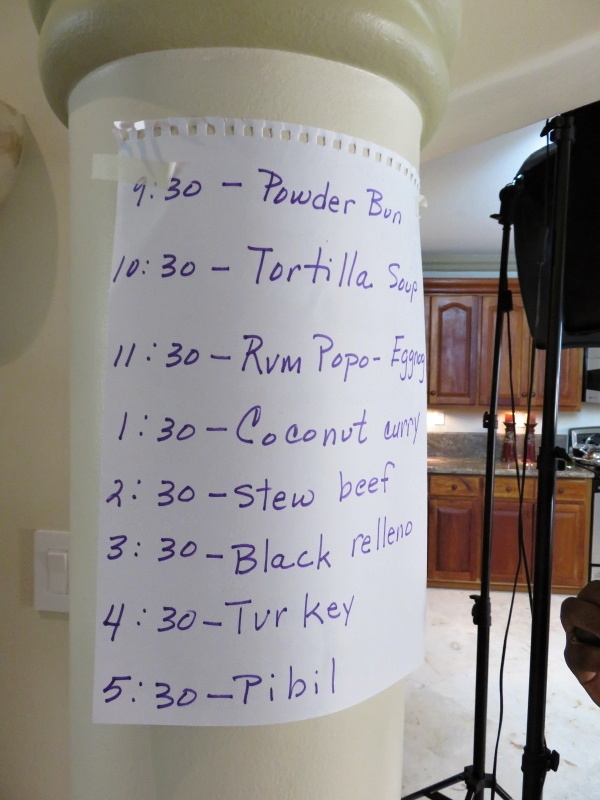 9:30 - Powder Bun
10:30 - Tortilla Soup
11:30 - Rum Popo - Eggnog
1:30 - Coconut curry
2:30 - Stew beef
3:30 - Black relleno
4:30 - Turkey
5:30 - Pibil